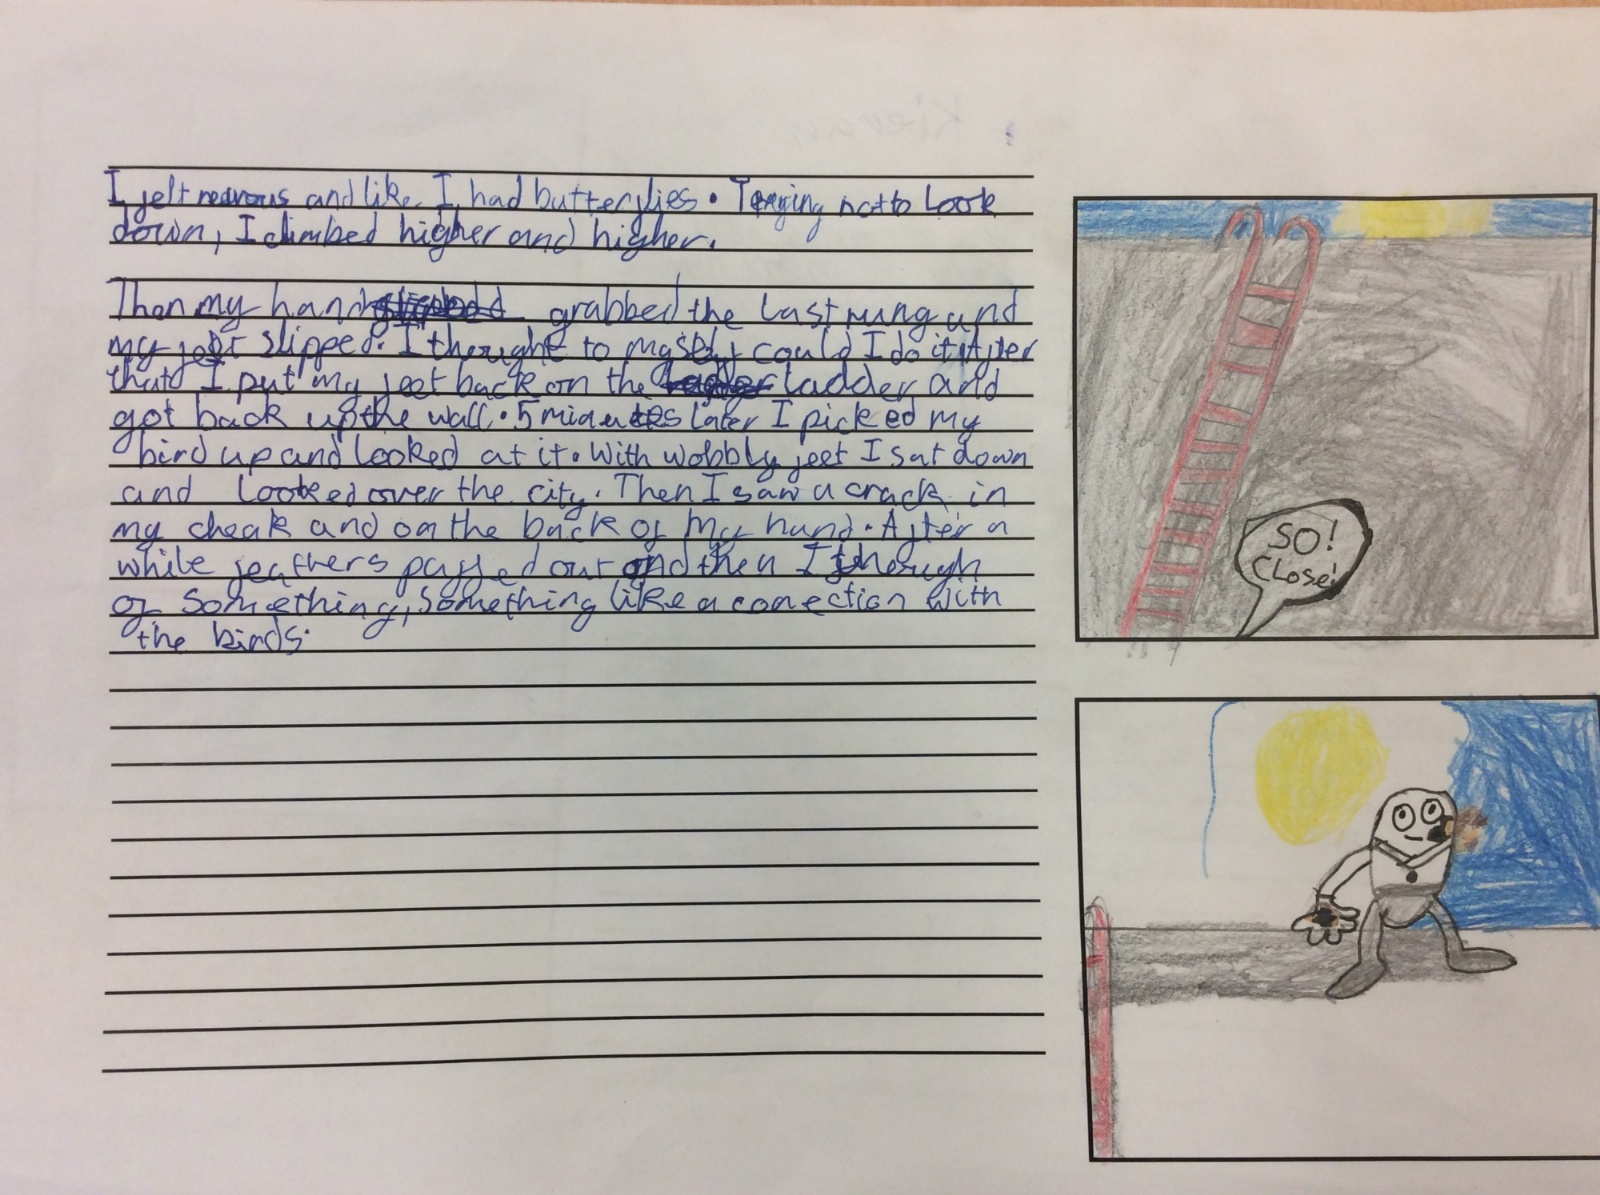 I felt nearvous and like I had butterflies. Trying not to Look
down, I climbed higher and higher.
Then my hand grabbed the last rung and
my feet slipped. I thought to myself could I do it. After
that I put my feet back on the ladder and
got back up the wall. 5 minuetes later I picked my
bird up and looked at it. With wobbly feet I sat down
and looked over the city. Then I saw a crack in
my cheak and on the back of my hand. After a
while feathers passed out and then I though
of something, something like a conection with
the birds.
SO!
CLose!